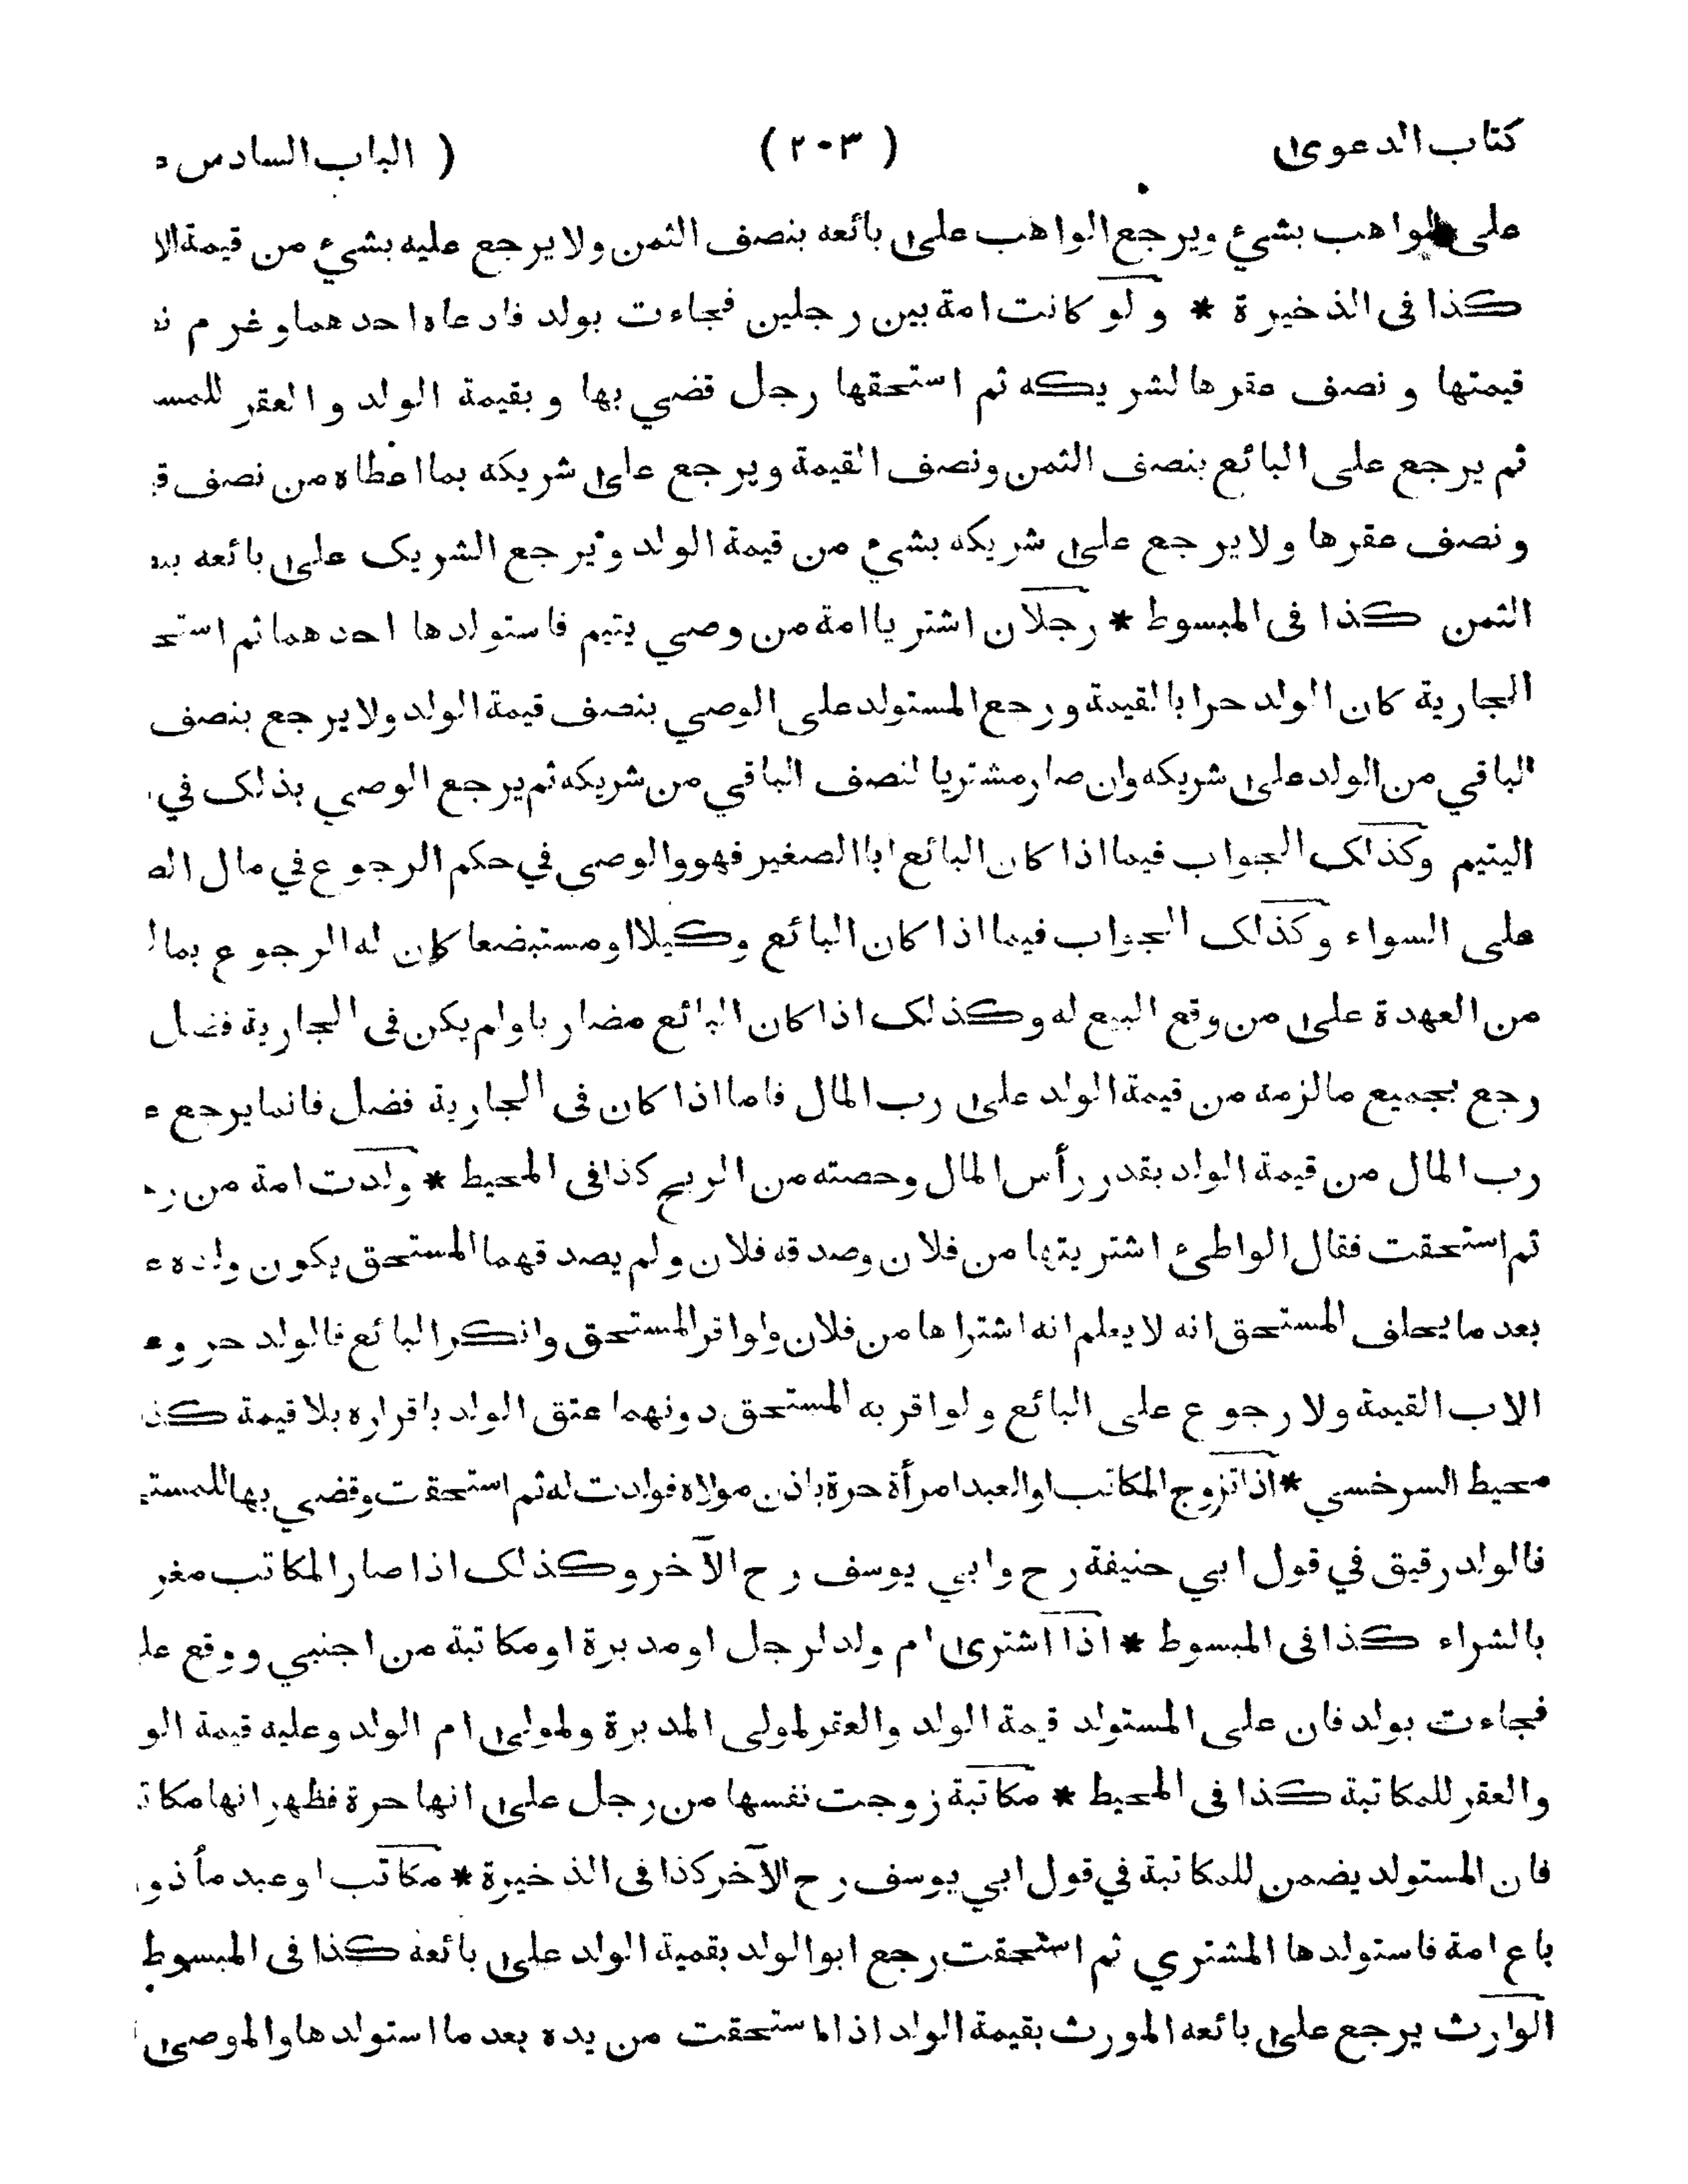 كتاب الدعوى (٢٠٣) ( الباب السادس
على الواهب بشيء ويرجع الواهب على بائعه بنصف الثمن ولا يرجع عليه بشيء من قيمة
كذا فى الذخيرة * ولو كانت امة بين رجلين فجاءت بولد فادعاه احدهما وغرم
قيمتها ونصف عقرها لشريكه ثم استحقها رجل قضي بها وبقيمة الولد والعقر
ثم يرجع على البائع بنصف الثمن ونصف القيمة ويرجع على شريكه بما اعطاه من نصف
ونصف عقرها ولا يرجع على شريكه بشيء من قيمة الولد ويرجع الشريك على بائعه
الثمن كذا فى المبسوط * رجلان اشتريا امة من وصي يتيم فاستولدها احدهما ثم
الجارية كان الولد حرا بالقيمة ورجع المستولد على الوصي بنصف قيمة الولد ولا يرجع بنصف
الباقي من الولد على شريكه وان صار مشتريا لنصف الباقي من شريكه ثم يرجع الوصي بذلك في
اليتيم وكذلك الجواب فيما اذا كان البائع ابا الصغير فهو والوصي في حكم الرجوع في مال
على السواء وكذلك الجواب فيما اذا كان البائع وكيلا او مستبضعا كان له الرجوع
من العهدة على من وقع البيع له وكذلك اذا كان البائع مضاربا ولم يكن فى الجارية فضل
رجع بجميع ما لزمه من قيمة الولد على رب المال فاما اذا كان فى الجارية فضل فانما يرجع
رب المال من قيمة الولد بقدر رأس المال وحصته من الربح كذا فى المحيط * ولدت امة من
ثم استحقت فقال الواطئ اشتريتها من فلان وصدقه فلان ولم يصدقهما المستحق يكون ولده
بعد ما يحلف المستحق انه لا يعلم انه اشتراها من فلان ولو اقر المستحق وانكر البائع فالولد حر
الاب القيمة ولا رجوع على البائع ولو اقر به المستحق دونهما عتق الولد باقراره بلا قيمة
محيط السرخسي * اذا تزوج المكاتب او العبد امرأة حرة باذن مولاه فولدت له ثم استحقت وقضي بها
فالولد رقيق في قول ابي حنيفة رح وابي يوسف رح الآخر وكذلك اذا صار المكاتب
بالشراء كذا فى المبسوط * اذا اشترى ام ولد لرجل او مدبرة او مكاتبة من اجنبي ووقع
فجاءت بولد فان على المستولد قيمة الولد والعقر لمولى المدبرة ولمولى ام الولد وعليه قيمة
والعقر للمكاتبة كذا فى المحيط * مكاتبة زوجت نفسها من رجل على انها حرة فظهر انها
فان المستولد يضمن للمكاتبة في قول ابي يوسف رح الآخر كذا فى الذخيرة * مكاتب او عبد
باع امة فاستولدها المشتري ثم استحقت رجع ابو الولد بقمية الولد على بائعه كذا فى المبسوط
الوارث يرجع على بائعه المورث بقيمة الولد اذا استحقت من يده بعد ما استولدها والموصى